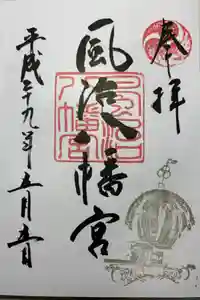 奉拝
風治八幡宮
平成二十九年五月五日